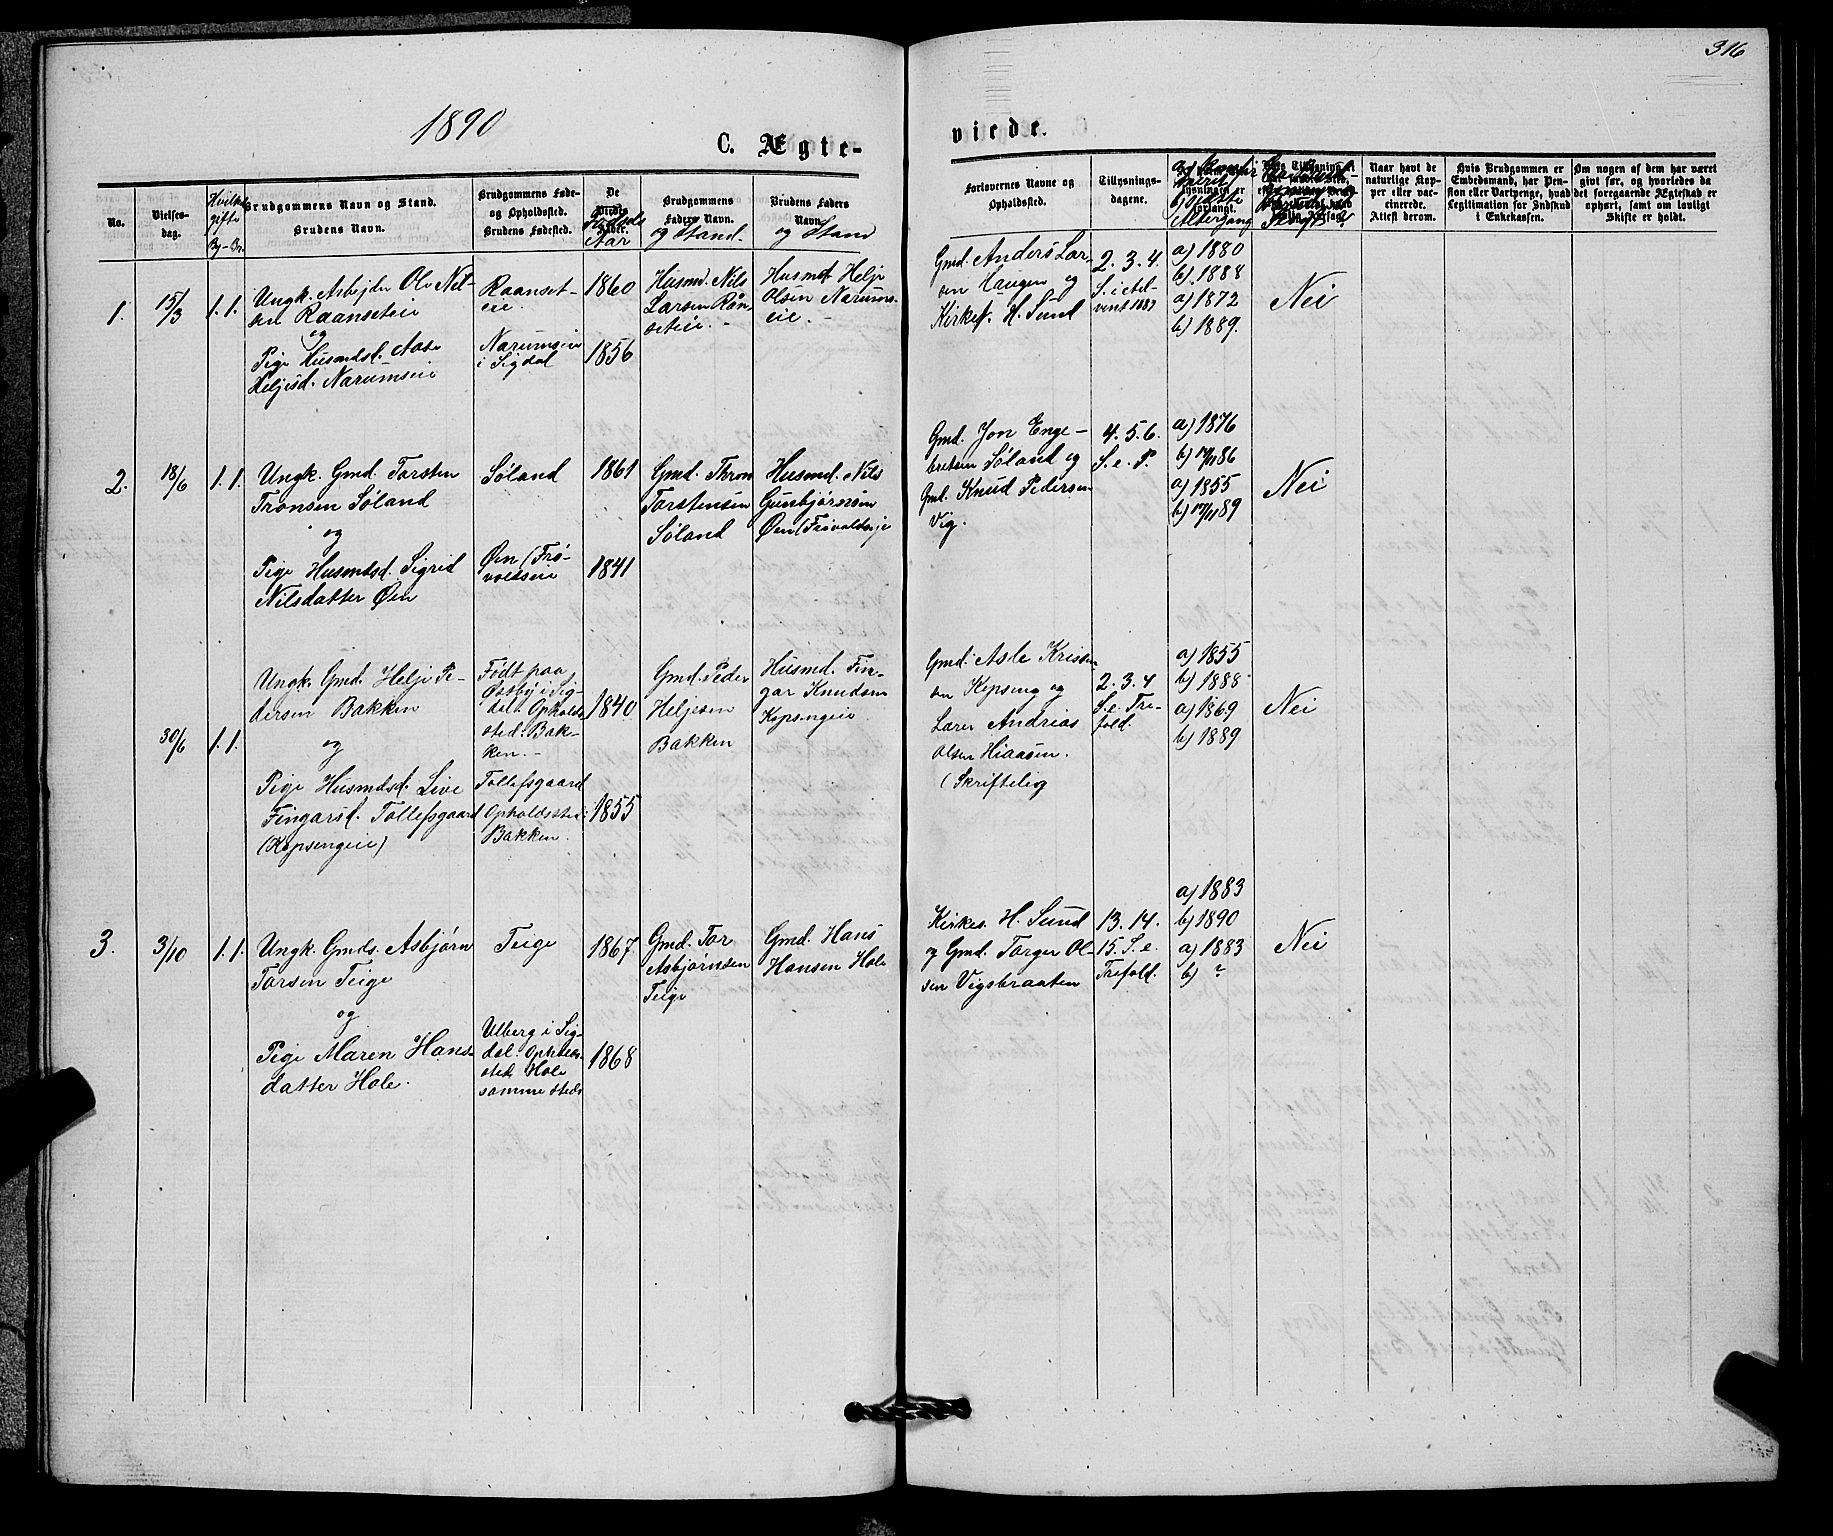 316
1890
C. Ægte-
viede.
No.
Vielses-
dag.
gifte
Bg - Br.
Brudgommens Navn og Stand.
Brudens Navn.
Brudgommens Føde-
og Opholdssted.
Brudens Fødested.
De
Viedes
Fødsels
Aar
Brudgommens
Faders Navn.
og Stand.
Brudens Faders
Navn.
og Stand
Forlovernes Navne og
Opholdssted.
Tillysnings-
dagene.
Naar havt de
naturlige Kop-
per eller var-
cinerede.
Attest derom.
Hvis Brudgommen er
Embedsmand, har Pen-
sion eller Vartpenge, hvad
Legitimation for Indskud
i Enkekassen.
Om nogen af dem har været
givt før, og hvorledes da
det foregaaende Ægteskab er
ophørt, samt om lovligt
Skifte er holdt.
1.
15/3
1. 1.
Ungk. Arbejder Ole Nil-
sen Raanseteie
og
Pige Husmdsd. Aase
Heljesd. Narumseie
Raanset-
eie.
Narumseie
i Sigdal
1860
1856
Husmd. Nils
Larsen Rån-
seteie. -
Husmd Helje
Olsen Narums-
eie. -
Gmd. Anders Lar-
sen Haugen og
Kirkes. H. Sund
2. 3. 4.
a) 1880
b) 1888
a) 1872
b) 1889.
Nei
2.
18/6
1. 1.
Ungk. Gmd. Torsten
Tronsen Søland
og
Pige Husmdsd. Sigrid
Nilsdatter Øen
Søland
Øen (Frø-
voldseie
1861
1841
Gmd. Thron
Torstensen
Søland
Husmd. Nils
Gunbjørnsen
Øen (Frøvoldseie
Gmd. Jon Enge-
bretsen Søland og
Gmd. Knud Pedersen
Vig.
4. 5. 6.
S. e. P.
a) 1876
b) 17/11 86
a) 1855
b) 17/11 89
Nei
30/6
1. 1.
Ungk. Gmd. Helje Pe-
dersen Bakken
og
Pige Husmdsd. Live
Fingarsd. Tollefsgaard
(Kopsengeie)
Født paa
i Sig-
dal. Opholds-
sted: Bak-
ken. -
Tollefsgaard
Opholdssted:
Bakken.
1840
1855
Gmd. Peder
Heljesen
Bakken
Husmd. Fin-
gar Knudsen
Kopsengeie.
Gmd. Asle Kristen-
sen Kopseng og
Lærer Andreas
Olsen Hiaasen.
(Skriftelig
2. 3. 4
S. e. Tre-
fold.
a) 1855
b) 1888
a) 1869
b) 1889
Nei
3.
3/10
1. 1.
Ungk. Gmds. Asbjørn
Torsen Teige
og
Pige Maren Hans-
datter Hole.
Teige
Ulberg i Sig-
dal. Opholds-
sted Hole
sammesteds
1867
1868
Gmd. Tor
Asbjørnsen
Teige
Gmd. Hans
Hansen Hole
Kirkes. H. Sund
og Gmd. Torger Ol-
sen Vigsbraaten
13. 14.
15. S. e.
Trefold.
a) 1883
b) 1890
a) 1883
b) ?
Nei